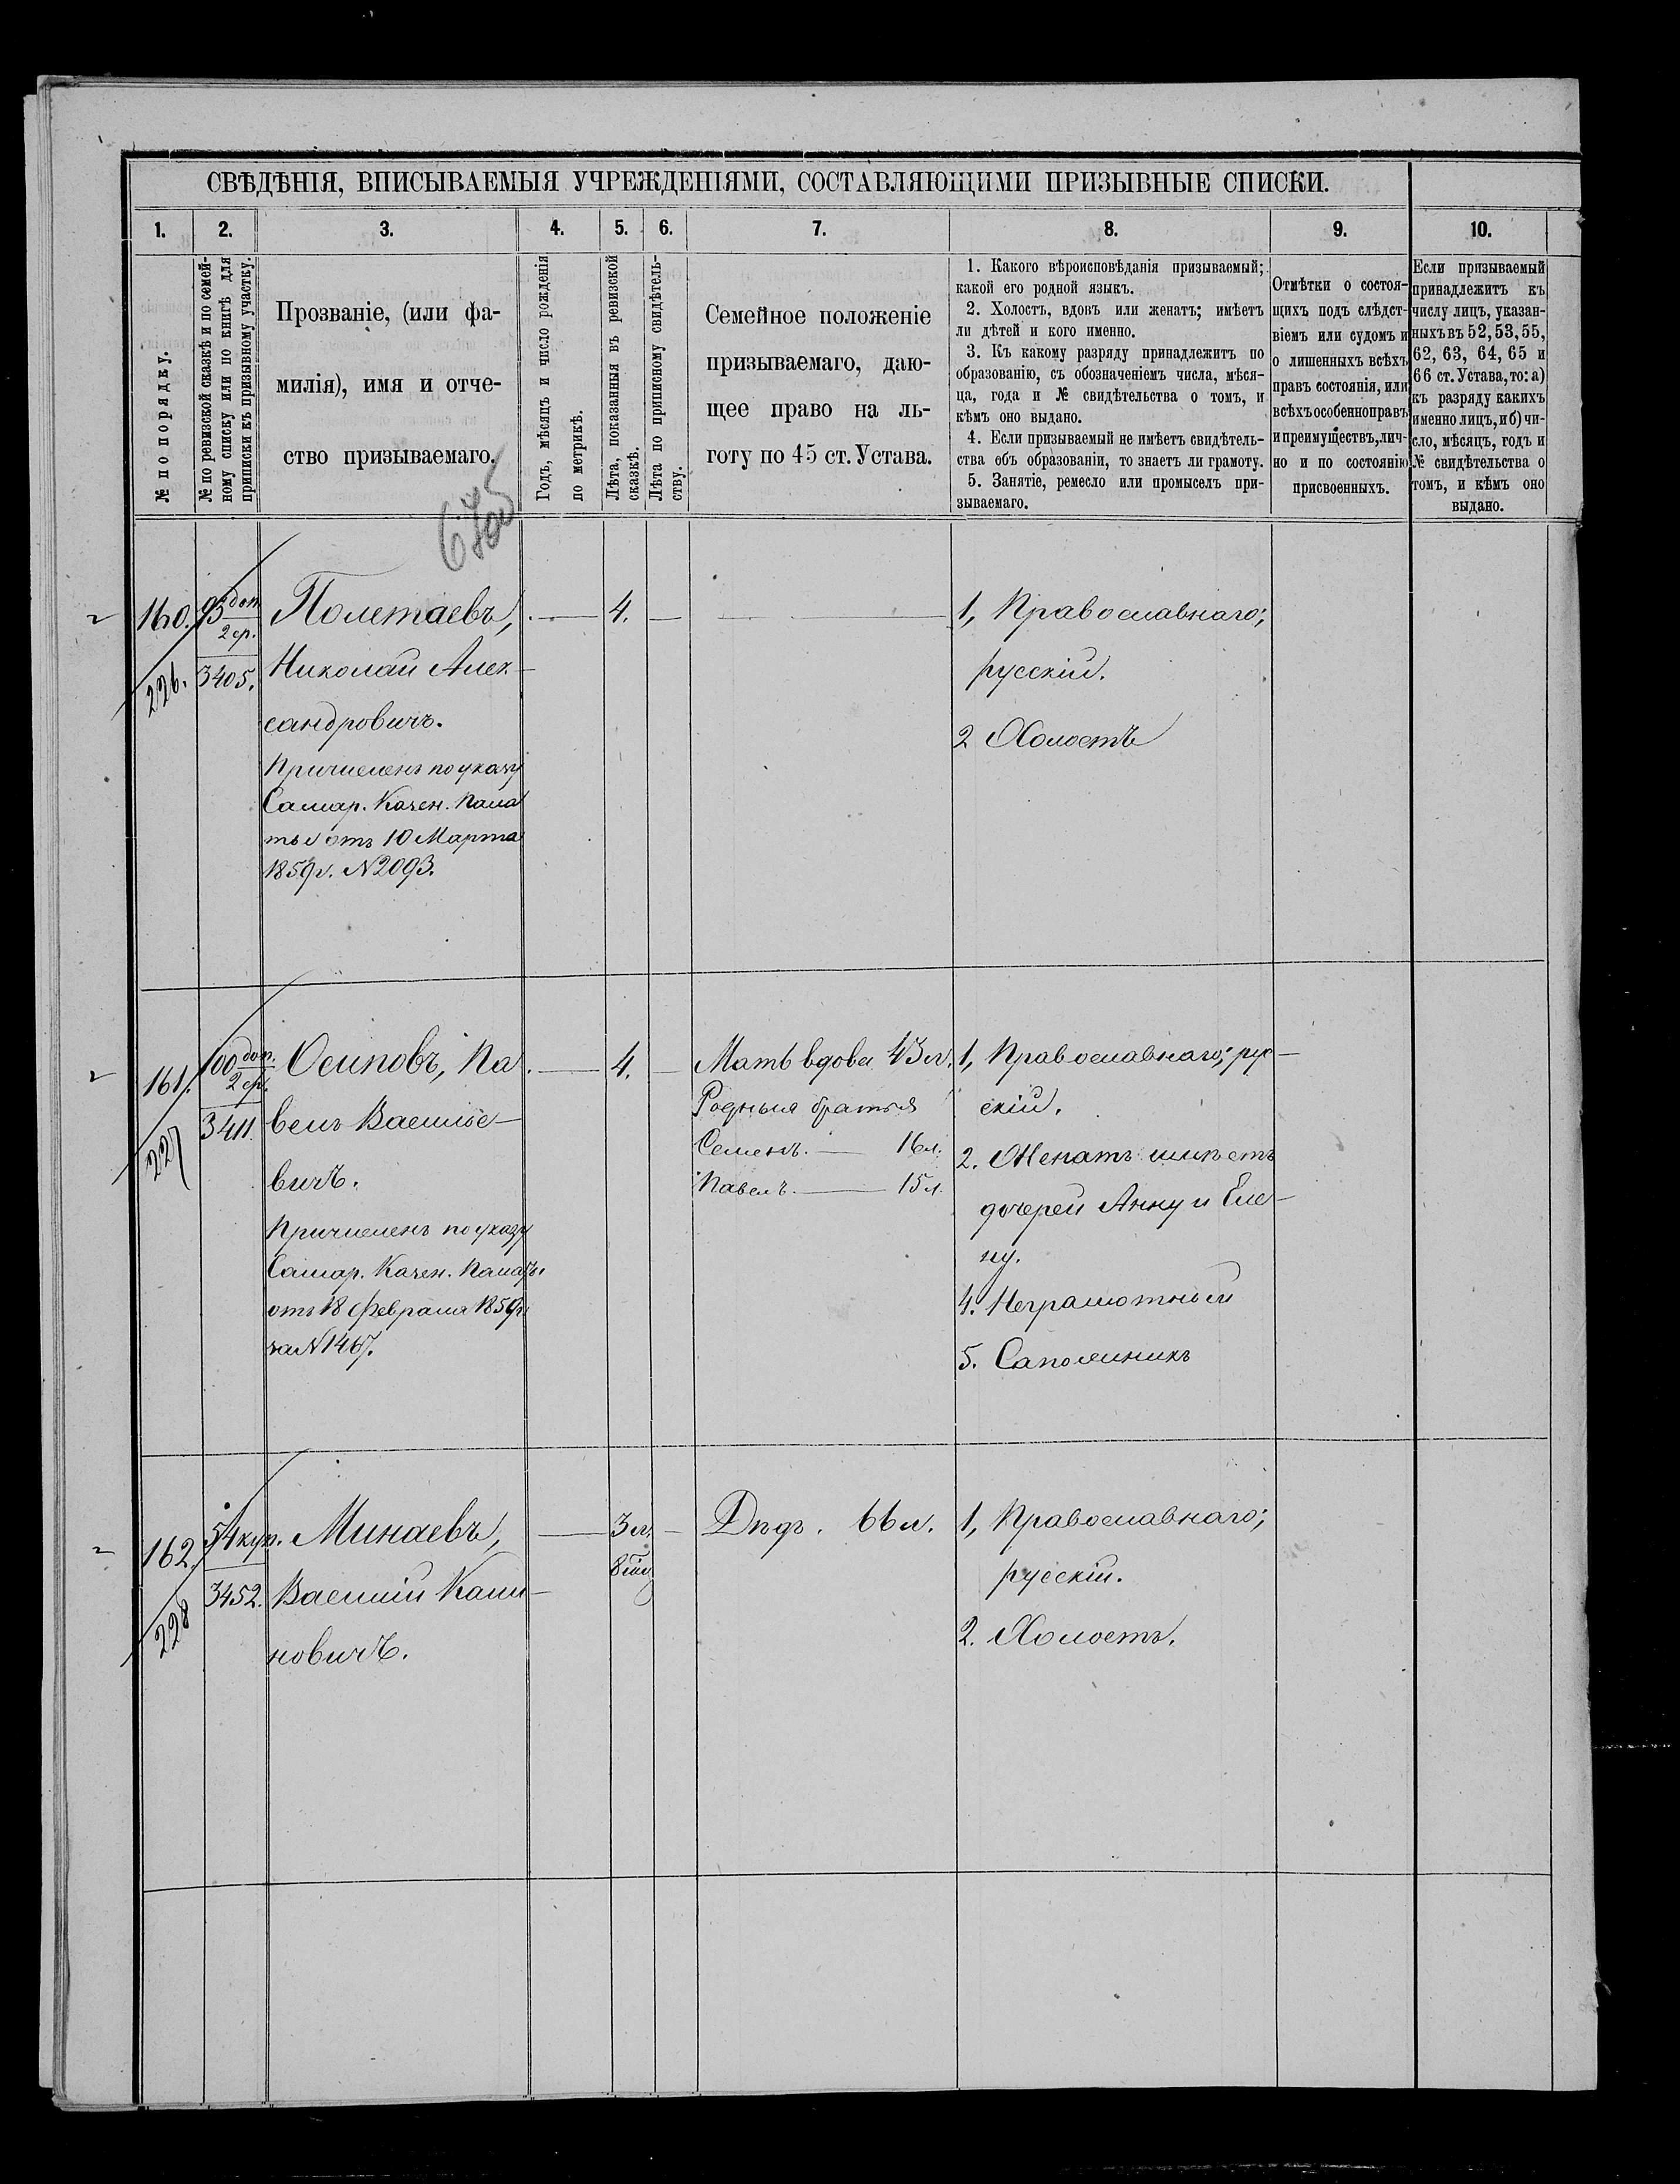 СВѢДѢНІЯ, ВПИСЫВАЕМЫЯ УЧРЕЖДЕНІЯМИ, СОСТАВЛЯЮЩИМИ ПРИЗЫВНЫЕ СПИСКИ.
1. 2. 3. 4. 5. 6. 7. 8. 9. 10.
№ по порядку.
№ по ревизской сказкѣ и по семей-
ному списку или по книгѣ для
приписки къ призывному участку.
Прозваніе, (или фа-
милія), имя и отче-
ство призываемаго.
Годъ, мѣсяцъ и число рожденія
по метрикѣ.
Лѣта, показанныя въ ревизской
сказкѣ.
Лѣта по приписному свидѣтель-
ству.
Семейное положеніе
призываемаго, даю-
щее право на ль-
готу по 45 ст. Устава.
1. Какого вѣроисповѣданія призываемый;
какой его родной языкъ.
2. Холостъ, вдовъ или женатъ; имѣетъ
ли дѣтей и кого именно.
3. Къ какому разряду принадлежитъ по
образованію, съ обозначеніемъ числа, мѣся-
ца, года и № свидѣтельства о томъ, и
кѣмъ оно выдано.
4. Если призываемый не имѣетъ свидѣтель-
ства объ образованіи, то знаетъ ли грамоту.
5. Занятіе, ремесло или промыселъ при-
зываемаго.
Отмѣтки о состоя-
щихъ подъ слѣдст-
віемъ или судомъ и
о лишенныхъ всѣхъ
правъ состоянія, или
всѣхъ особенно правъ
и преимуществъ, лич-
но и по состоянію
присвоенныхъ.
Если призываемый
принадлежитъ къ
числу лицъ, указан-
ныхъ въ 52, 53, 55,
62, 63, 64, 65 и
66 ст. Устава, то: а)
къ разряду какихъ
именно лицъ, и б) чи-
сло, мѣсяцъ, годъ и
№ свидѣтельства о
томъ, и кѣмъ оно
выдано.
160.
226.
95 доп
2 ср.
3405.
Полетаевъ,
Николай Алек-
сандровичъ.
Причисленъ по указу
Самар. Казен. Пала
ты отъ 10 Марта
1859г. N2093.
4.
1, Православнаго;
русскій.
2 Холостъ
161.
227
100 доп.
2 ср.
3411.
Осиповъ, Па
велъ Василье-
вичъ.
Причисленъ по указу
Самар. Казен. Палаты
отъ 18 Февраля 1859г.
за N1467.
4.
Мать вдова 43 л.
Родныя братья
Семенъ. — 16л.
Павелъ. — 15л.
1, Православнаго; рус-
скій.
2. Женатъ имѣетъ
дочерей Анну и Еле-
ну.
4. Неграмотный
5. Сапожникъ
162.
228
54 куп.
3452.
Минаевъ,
Василій Кали-
новичъ.
3 л.
Дѣдъ. 66 л.
1, Православнаго;
русскій.
2. Холостъ.